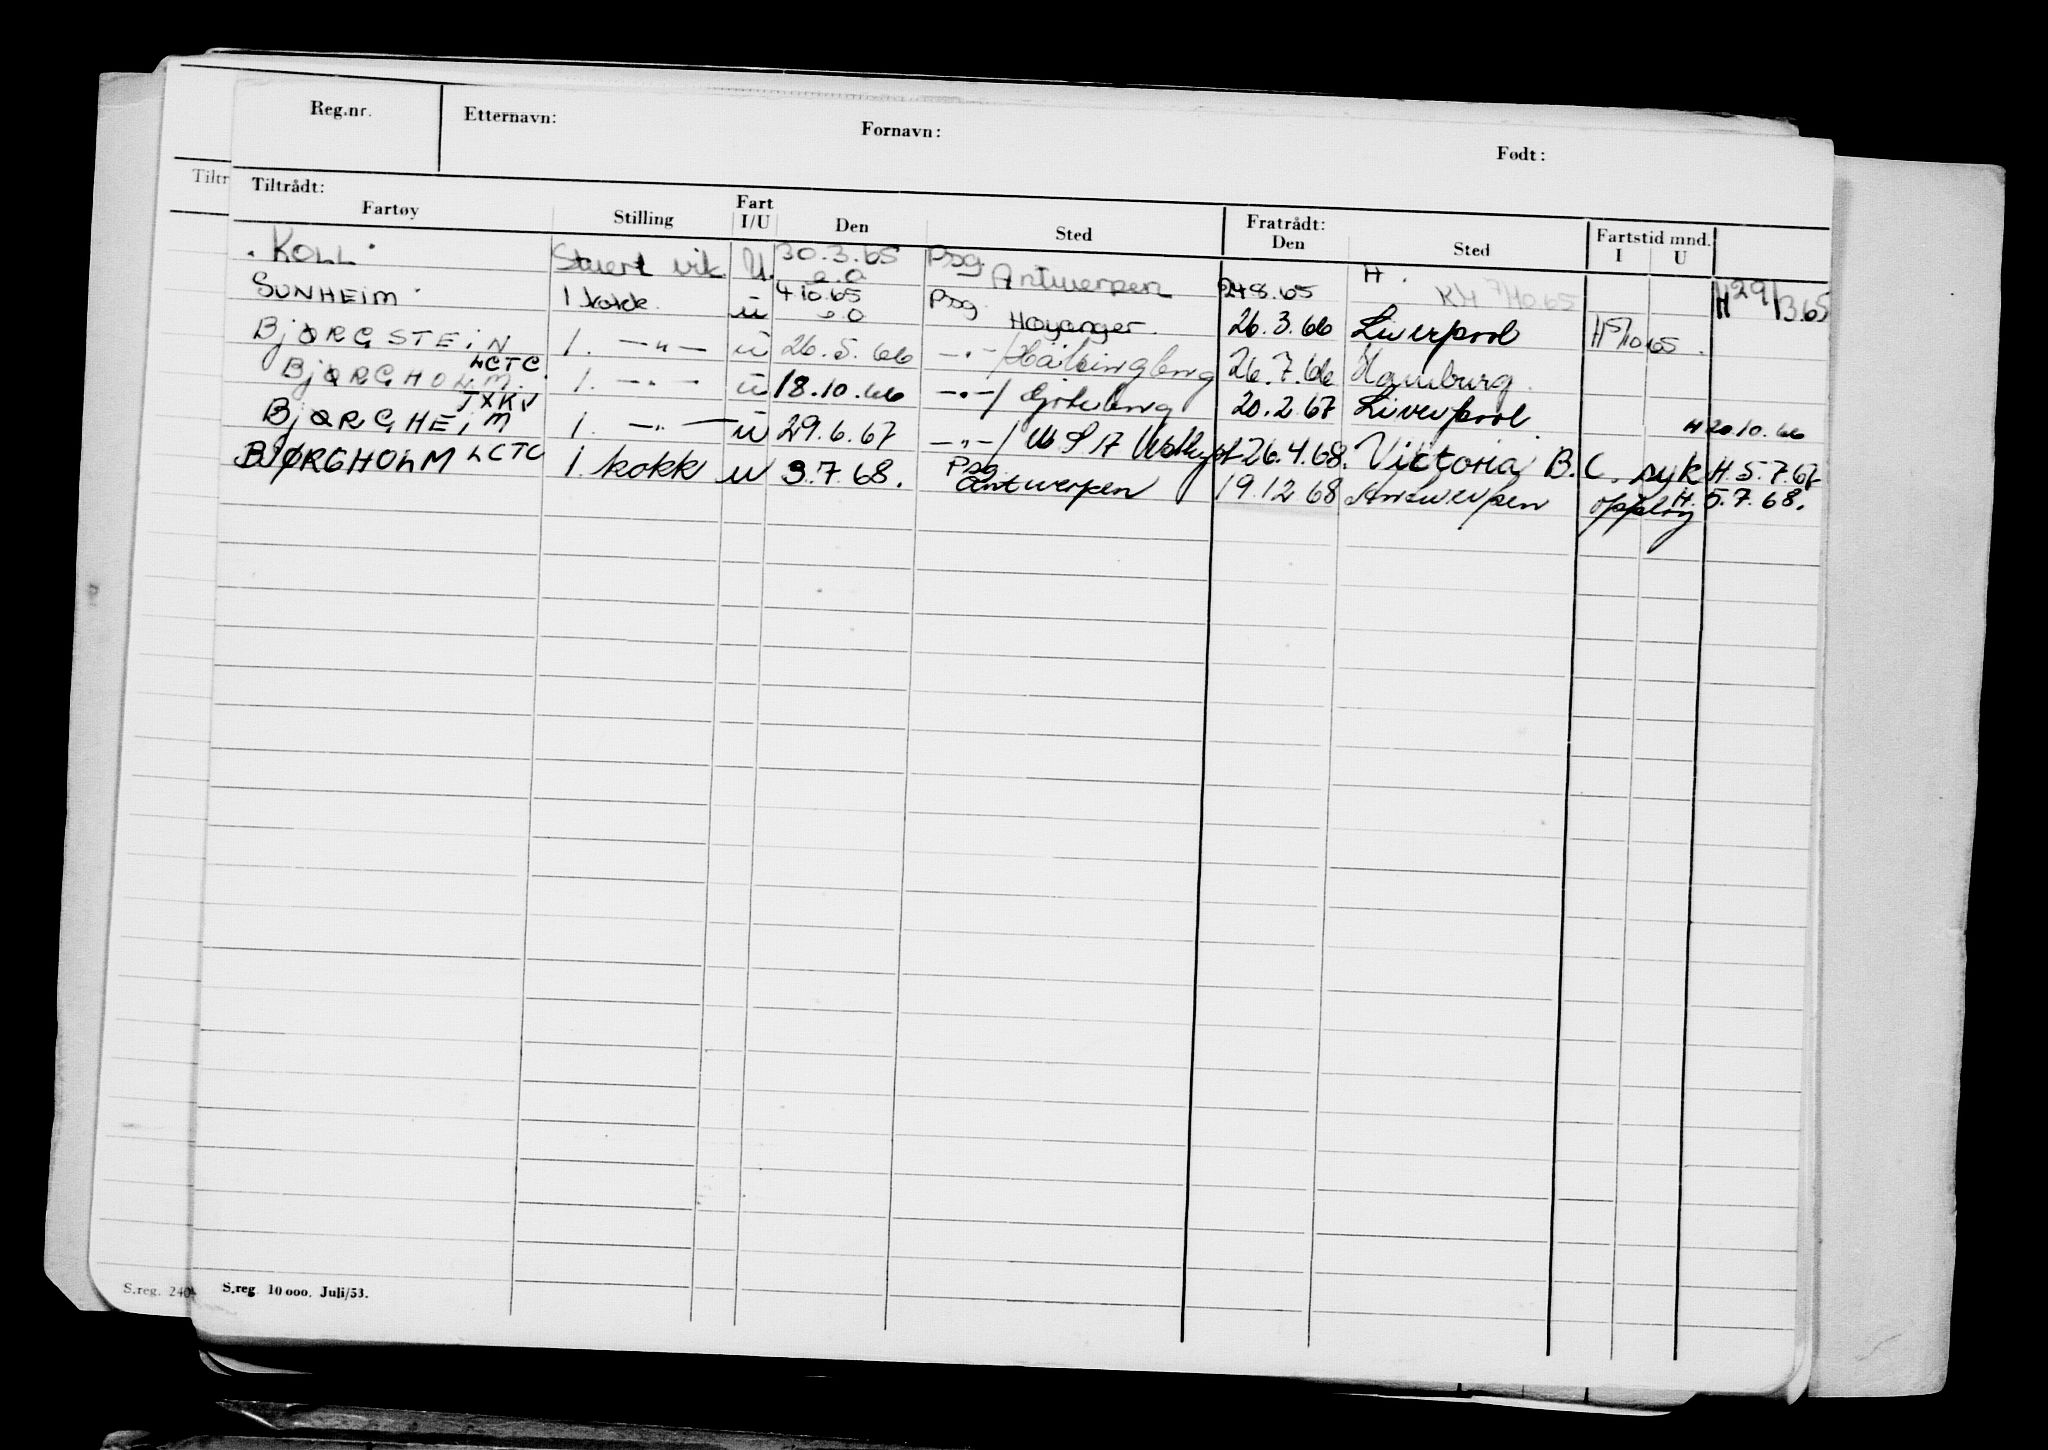 Reg.nr. Etternavn: Fornavn: Født:
Tiltr Tiltrådt: Fratrådt: Fartstid mnd.
Fartøy Stilling Fart I/U Den Sted Den Sted I U
KOLL Stuert vik U. 30.3.65 Psg. Antwerpen 24.8.65 H. H 29/3.65
e.o KH 7/10.65
SUNHEIM 1 kokk u 4.10.65 Psg. Høyanger 26.3.66 Liverpool H 5/10 65.
e.o
BJØRGSTEIN LCTC. 1. —"— u 26.5.66 —"—/ Hälsingborg 26.7.66 Hamburg.
BJØRGHOLM. JXKV 1. —"— u 18.10.66 —"—/ Göteborg 20.2.67 Liverpool H 20.10.66
BJØRGHEIM 1. —"— u 29.6.67 —"—/ USA 26.4.68. Victoria B.C. syk H. 5.7.67
BJØRGHOLM LCTC 1. kokk u 3.7.68. Psg. Antwerpen 19.12.68 Antwerpen opplag H. 5.7.68.
S.reg. 240 S.reg. 10 000. Juli/53.